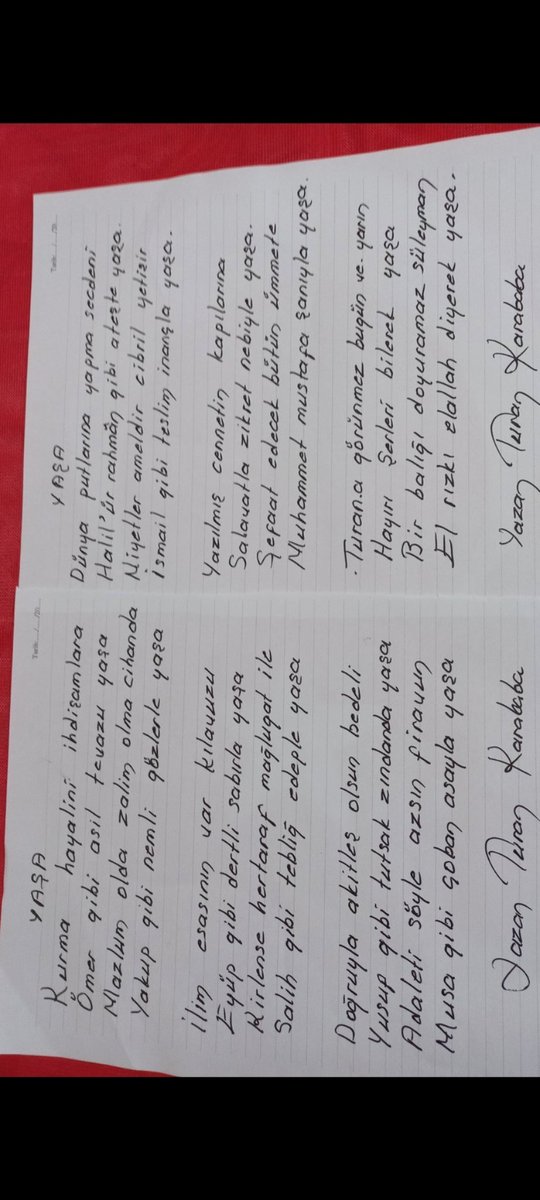 YAŞA
Kurma hayalini ihdişamlara
Ömer gibi asil tevazu yaşa
Mazlum olda zalim olma cihanda
Yakup gibi nemli gözlerle yaşa
İlim esasının var kılavuzu
Eyüp gibi dertli sabırla yaşa
Kirlense hertaraf mağlugat ile
Salih gibi tebliğ edeple yaşa
Doğruyla akitleş olsun bedeli
Yusup gibi tutsak zındanda yaşa
Adaleti söyle azsın firavun
Musa gibi çoban asayla yaşa
Yazan Turan Karababa
YAŞA
Dünya putlarına yapma secdeni
Halil'ür rahmân gibi ateşte yaşa.
Niyetler ameldir cibril yetişir
İsmail gibi teslim inançla yaşa.
Yazılmış cennetin kapılarına
Salavatla zikret nebiyle yaşa.
Şefaat edecek bütün ümmete
Muhammet mustafa şanıyla yaşa.
Turan.a görünmez bugün ve yarın
Hayırı Şerleri bilerek yaşa
Bir balığı doyuramaz süleyman
El rızkı elallah diyerek yaşa.
Yazan Turan Karababa